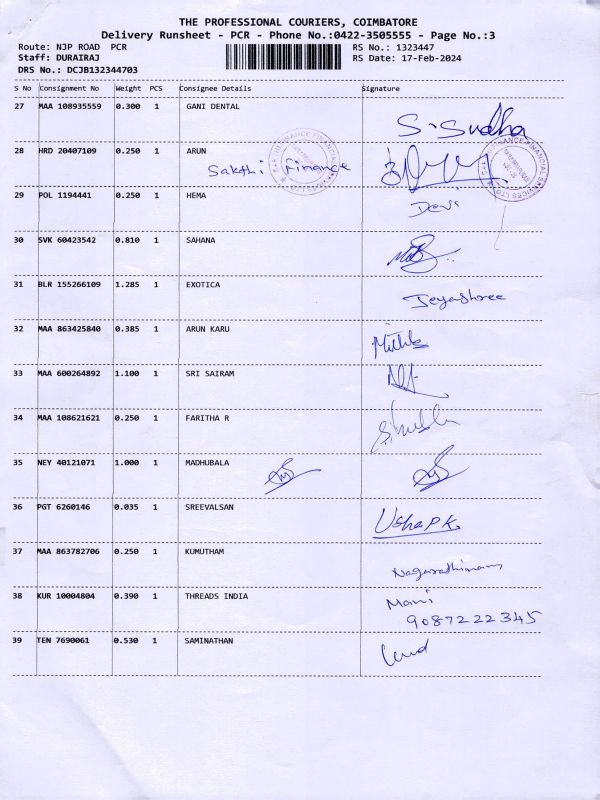 THE PROFESSIONAL COURIERS, COIMBATORE
Delivery Runsheet - PCR - Phone No.:0422-3505555 - Page No.:3
Route: NJP ROAD PCR RS No.: 1323447
Staff: DURAIRAJ RS Date: 17-Feb-2024
DRS No.: DCJB132344703
S No Consignment No Weight PCS Consignee Details Signature
27 MAA 108935559 0.300 1 GANI DENTAL
S.Sudha
28 HRD 20407109 0.250 1 ARUN
Sakthi Finance
29 POL 1194441 0.250 1 HEMA
Devi
30 SVK 60423542 0.810 1 SAHANA
31 BLR 155266109 1.285 1 EXOTICA
Jeyashree
32 MAA 863425840 0.385 1 ARUN KARU
33 MAA 600264892 1.100 1 SRI SAIRAM
34 MAA 108621621 0.250 1 FARITHA R
35 NEY 40121071 1.000 1 MADHUBALA
36 PGT 6260146 0.035 1 SREEVALSAN
Usha P K
37 MAA 863782706 0.250 1 KUMUTHAM
Nagarathinam
38 KUR 10004804 0.390 1 THREADS INDIA
Mani
9087222345
39 TEN 7690061 0.530 1 SAMINATHAN